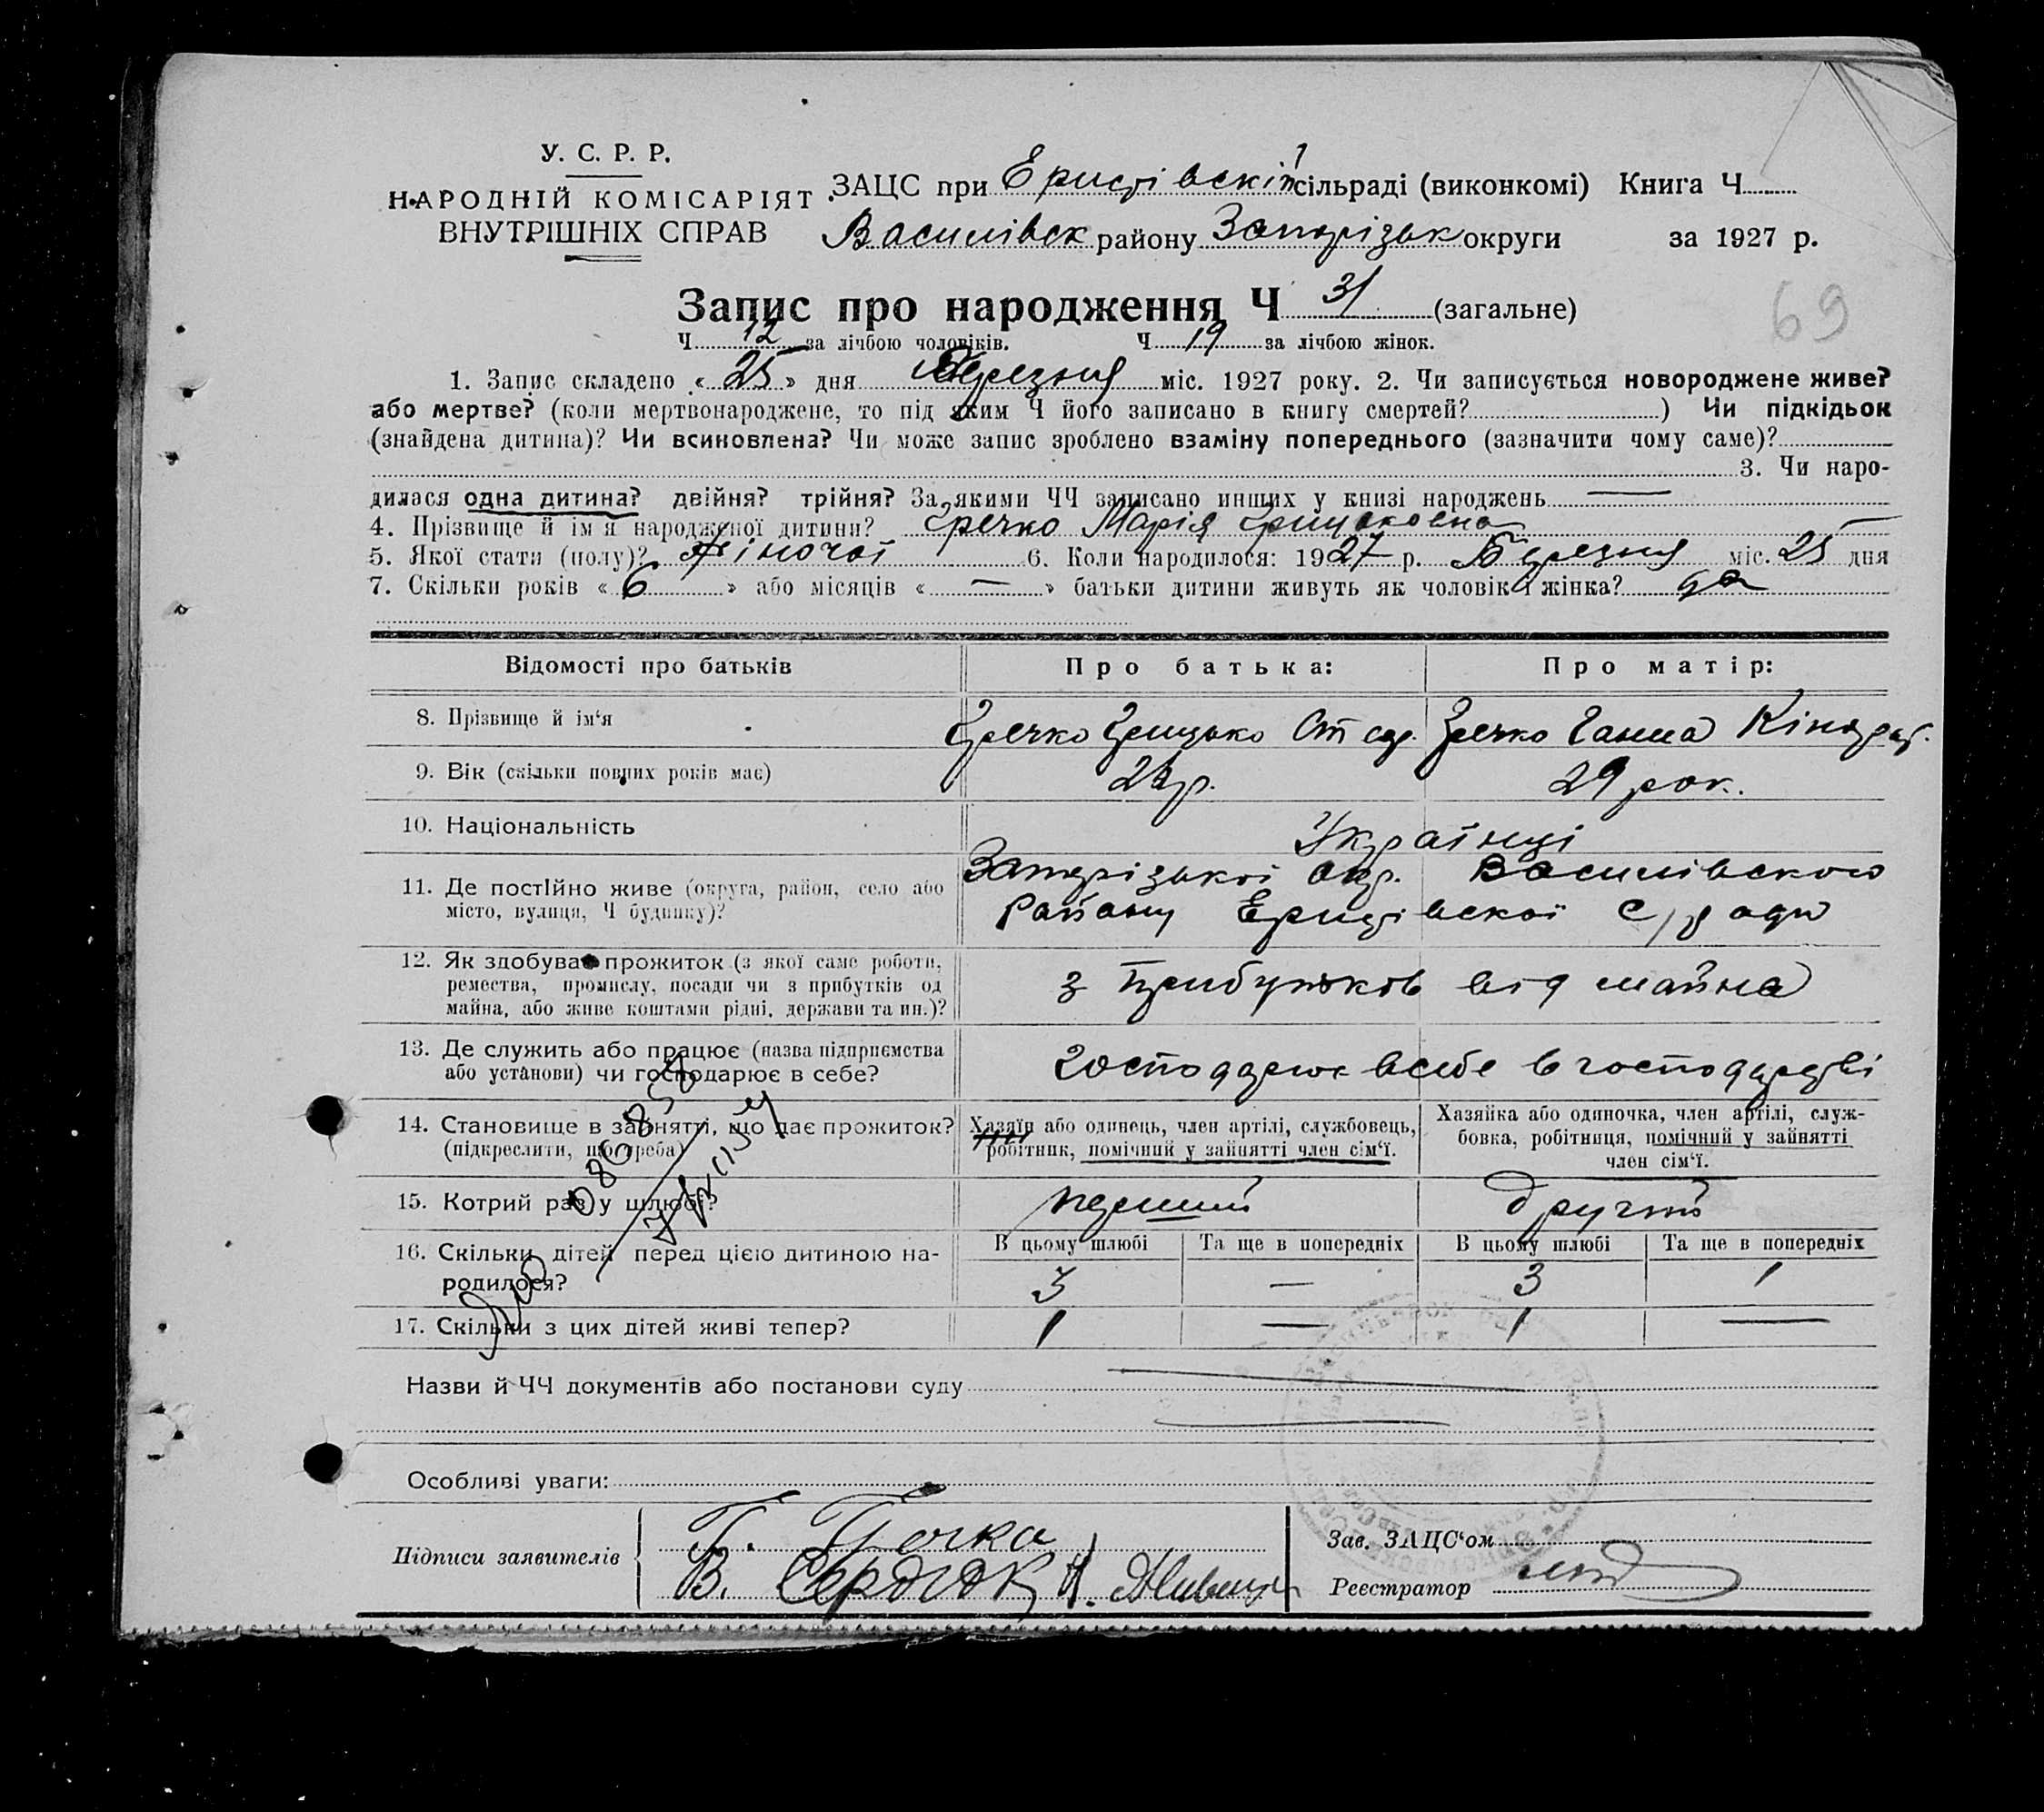 У. С. Р. Р.
НАРОДНІЙ КОМІСАРІЯТ
ВНУТРІШНІХ СПРАВ
ЗАЦС при Ериствівскій сільраді (виконкомі) Книга Ч
Василівск району Запорізьк округи за 1927 р.
Запис про народження Ч 31 (загальне)
Ч 12 за лічбою чоловіків. Ч 19 за лічбою жінок.
69
1. Запис складено « 25 » дня Березня міс. 1927 року. 2. Чи записується новороджене живе?
або мертве? (коли мертвонароджене, то під яким Ч його записано в книгу смертей? ) Чи підкідьок
(знайдена дитина)? Чи всиновлена? Чи може запис зроблено взаміну попереднього (зазначити чому саме)?
3. Чи наро-
дилася одна дитина? двійня? трійня? За якими ЧЧ записано инших у книзі народжень —
4. Прізвище й ім'я народженої дитини? Гречко Марія Грицьковна
5. Якої стати (полу)? жіночої 6. Коли народилося: 1927 р. Березня міс. 25 дня
7. Скільки років « 6 » або місяців « — » батьки дитини живуть як чоловік і жінка? да
Відомості про батьків Про батька: Про матір:
8. Прізвище й ім'я Гречко Грицько Гречко Ганна Кіндрат.
9. Вік (скільки повних років має) 29 рок.
10. Національність Українці
11. Де постійно живе (округа, район, село або
місто, вулиця, Ч будинку)?
Запорізької окр. Василівского
Району Ериствівскої с/ради
12. Як здобуває прожиток (з якої саме роботи,
ремества, промислу, посади чи з прибутків од
майна, або живе коштами рідні, держави та ин.)?
з прибутків від майна
13. Де служить або працює (назва підприємства
або установи) чи господарює в себе?
господарює всебе в господарстві
14. Становище в зайнятті, що дає прожиток?
(підкреслити, що треба)
Хазяїн або одинець, член артілі, службовець,
робітник, помічний у зайнятті член сім'ї.
Хазяйка або одиночка, член артілі, служ-
бовка, робітниця, помічний у зайнятті
член сім'ї.
15. Котрий раз у шлюбі? перший другий
16. Скільки дітей перед цією дитиною на-
родилося?
В цьому шлюбі Та ще в попередніх В цьому шлюбі Та ще в попередніх
3 — 3 1
17. Скільки з цих дітей живі тепер? 1 — 1 —
Назви й ЧЧ документів або постанови суду
Особливі уваги:
Підписи заявителів
В. Сердюк
Зав. ЗАЦС'ом
Реєстратор